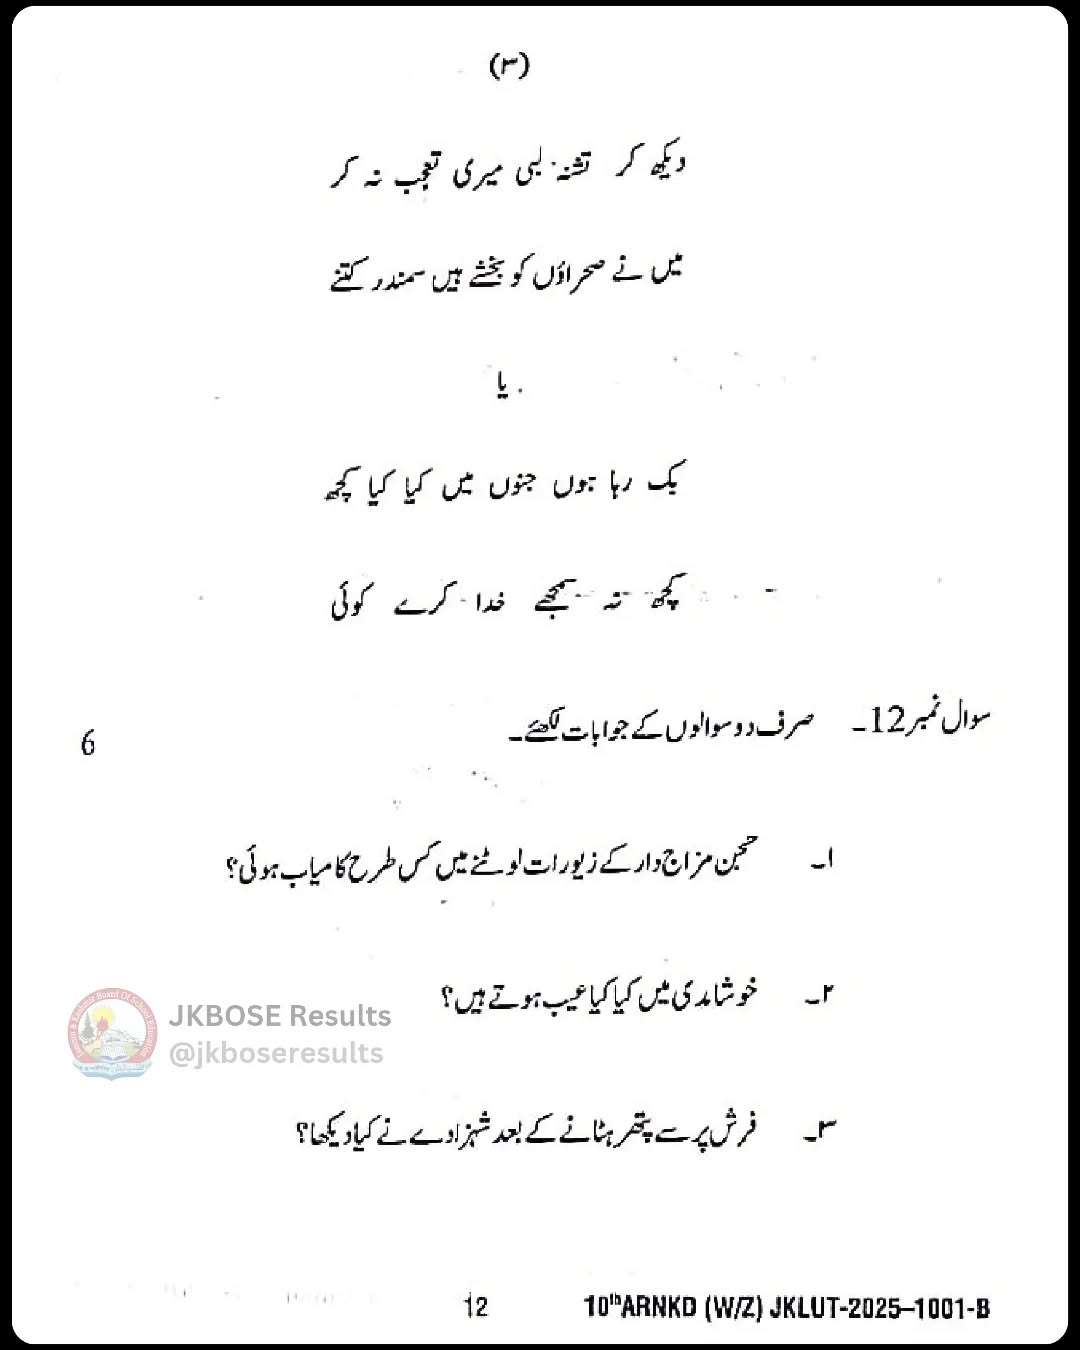 (۳)
دیکھ کر تشنہ لبی میری تعجب نہ کر
میں نے صحراؤں کو بخشے ہیں سمندر کتنے
یا
بک رہا ہوں جنوں میں کیا کیا کچھ
کچھ نہ سمجھے خدا کرے کوئی
سوال نمبر 12۔ صرف دو سوالوں کے جوابات لکھئے۔ 6
۱۔ حجن مزاج دار کے زیورات لوٹنے میں کس طرح کامیاب ہوئی؟
۲۔ خوشامدی میں کیا کیا عیب ہوتے ہیں؟
JKBOSE Results
@jkboseresults
۳۔ فرش پر سے پتھر ہٹانے کے بعد شہزادے نے کیا دیکھا؟
12 10th ARNKD (W/Z) JKLUT-2025–1001-B